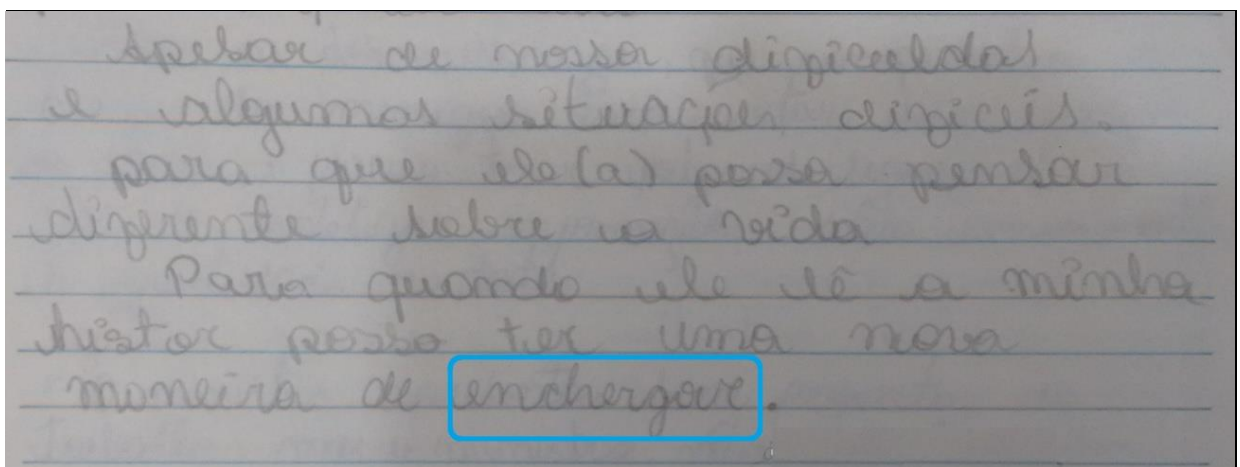 Apesar de nossa dificuldas
e algumas situações difíceis.
para que ele(a) possa pensar
diferente sobre a vida
Para quando ele lê a minha
histor possa ter uma nova
maneira de enchergar.